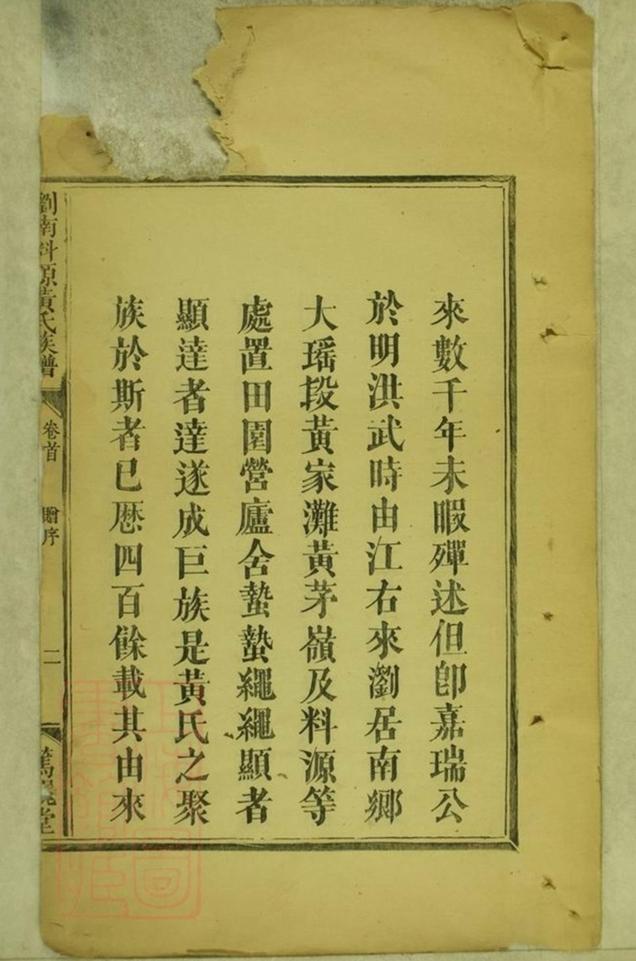 來數千年未暇殫述但卽嘉瑞公
於明洪武時由江右來瀏居南鄉
大瑶段黃家灘黃茅嶺及料源等
處置田園營廬舍蟄蟄繩繩顯者
顯達者達遂成巨族是黃氏之聚
族於斯者已歷四百餘載其由來
瀏南料源黃氏族譜
卷首
贈序
二